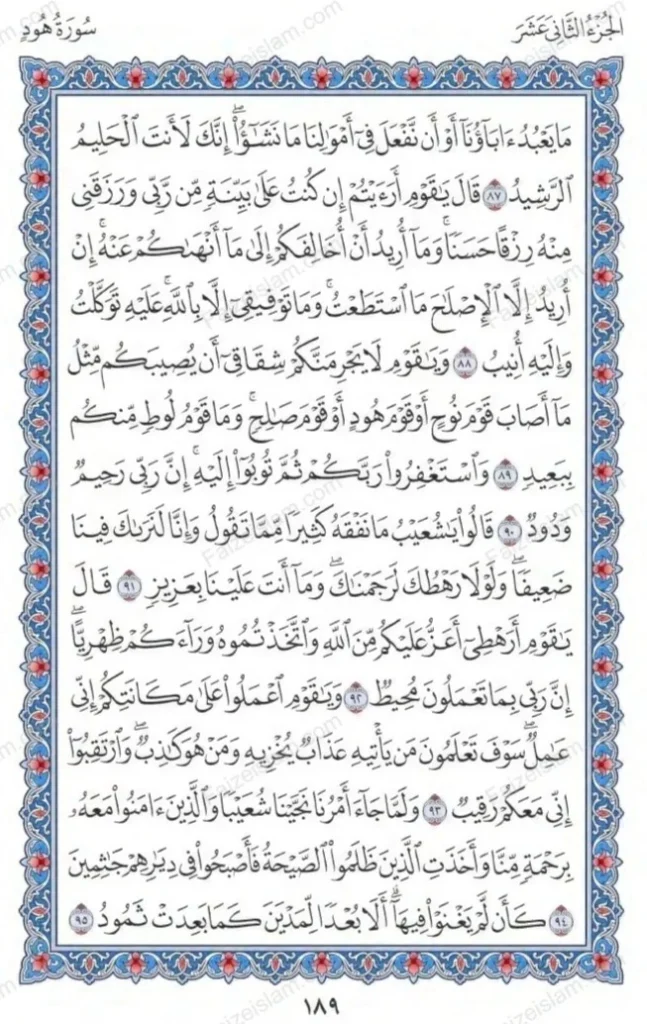 الجُزْءُ الثَّانِيَ عَشَرَ
سُورَةُ هُودٍ
مَا يَعْبُدُ ءَابَآؤُنَآ أَوْ أَن نَّفْعَلَ فِىٓ أَمْوَٰلِنَا مَا نَشَـٰٓؤُا۟ ۖ إِنَّكَ لَأَنتَ ٱلْحَلِيمُ
ٱلرَّشِيدُ ٨٧ قَالَ يَـٰقَوْمِ أَرَءَيْتُمْ إِن كُنتُ عَلَىٰ بَيِّنَةٍ مِّن رَّبِّى وَرَزَقَنِى
مِنْهُ رِزْقًا حَسَنًا ۚ وَمَآ أُرِيدُ أَنْ أُخَالِفَكُمْ إِلَىٰ مَآ أَنْهَىٰكُمْ عَنْهُ ۚ إِنْ
أُرِيدُ إِلَّا ٱلْإِصْلَـٰحَ مَا ٱسْتَطَعْتُ ۚ وَمَا تَوْفِيقِىٓ إِلَّا بِٱللَّهِ ۚ عَلَيْهِ تَوَكَّلْتُ
وَإِلَيْهِ أُنِيبُ ٨٨ وَيَـٰقَوْمِ لَا يَجْرِمَنَّكُمْ شِقَاقِىٓ أَن يُصِيبَكُم مِّثْلُ
مَآ أَصَابَ قَوْمَ نُوحٍ أَوْ قَوْمَ هُودٍ أَوْ قَوْمَ صَـٰلِحٍ ۚ وَمَا قَوْمُ لُوطٍ مِّنكُم
بِبَعِيدٍ ٨٩ وَٱسْتَغْفِرُوا۟ رَبَّكُمْ ثُمَّ تُوبُوٓا۟ إِلَيْهِ ۚ إِنَّ رَبِّى رَحِيمٌ
وَدُودٌ ٩٠ قَالُوا۟ يَـٰشُعَيْبُ مَا نَفْقَهُ كَثِيرًا مِّمَّا تَقُولُ وَإِنَّا لَنَرَىٰكَ فِينَا
ضَعِيفًا ۖ وَلَوْلَا رَهْطُكَ لَرَجَمْنَـٰكَ ۖ وَمَآ أَنتَ عَلَيْنَا بِعَزِيزٍ ٩١ قَالَ
يَـٰقَوْمِ أَرَهْطِىٓ أَعَزُّ عَلَيْكُم مِّنَ ٱللَّهِ وَٱتَّخَذْتُمُوهُ وَرَآءَكُمْ ظِهْرِيًّا ۖ
إِنَّ رَبِّى بِمَا تَعْمَلُونَ مُحِيطٌ ٩٢ وَيَـٰقَوْمِ ٱعْمَلُوا۟ عَلَىٰ مَكَانَتِكُمْ إِنِّى
عَـٰمِلٌ ۖ سَوْفَ تَعْلَمُونَ مَن يَأْتِيهِ عَذَابٌ يُخْزِيهِ وَمَنْ هُوَ كَـٰذِبٌ ۖ وَٱرْتَقِبُوٓا۟
إِنِّى مَعَكُمْ رَقِيبٌ ٩٣ وَلَمَّا جَآءَ أَمْرُنَا نَجَّيْنَا شُعَيْبًا وَٱلَّذِينَ ءَامَنُوا۟ مَعَهُۥ
بِرَحْمَةٍ مِّنَّا وَأَخَذَتِ ٱلَّذِينَ ظَلَمُوا۟ ٱلصَّيْحَةُ فَأَصْبَحُوا۟ فِى دِيَـٰرِهِمْ جَـٰثِمِينَ
٩٤ كَأَن لَّمْ يَغْنَوْا۟ فِيهَآ ۗ أَلَا بُعْدًا لِّمَدْيَنَ كَمَا بَعِدَتْ ثَمُودُ ٩٥
١٨٩
Faizeislam.com